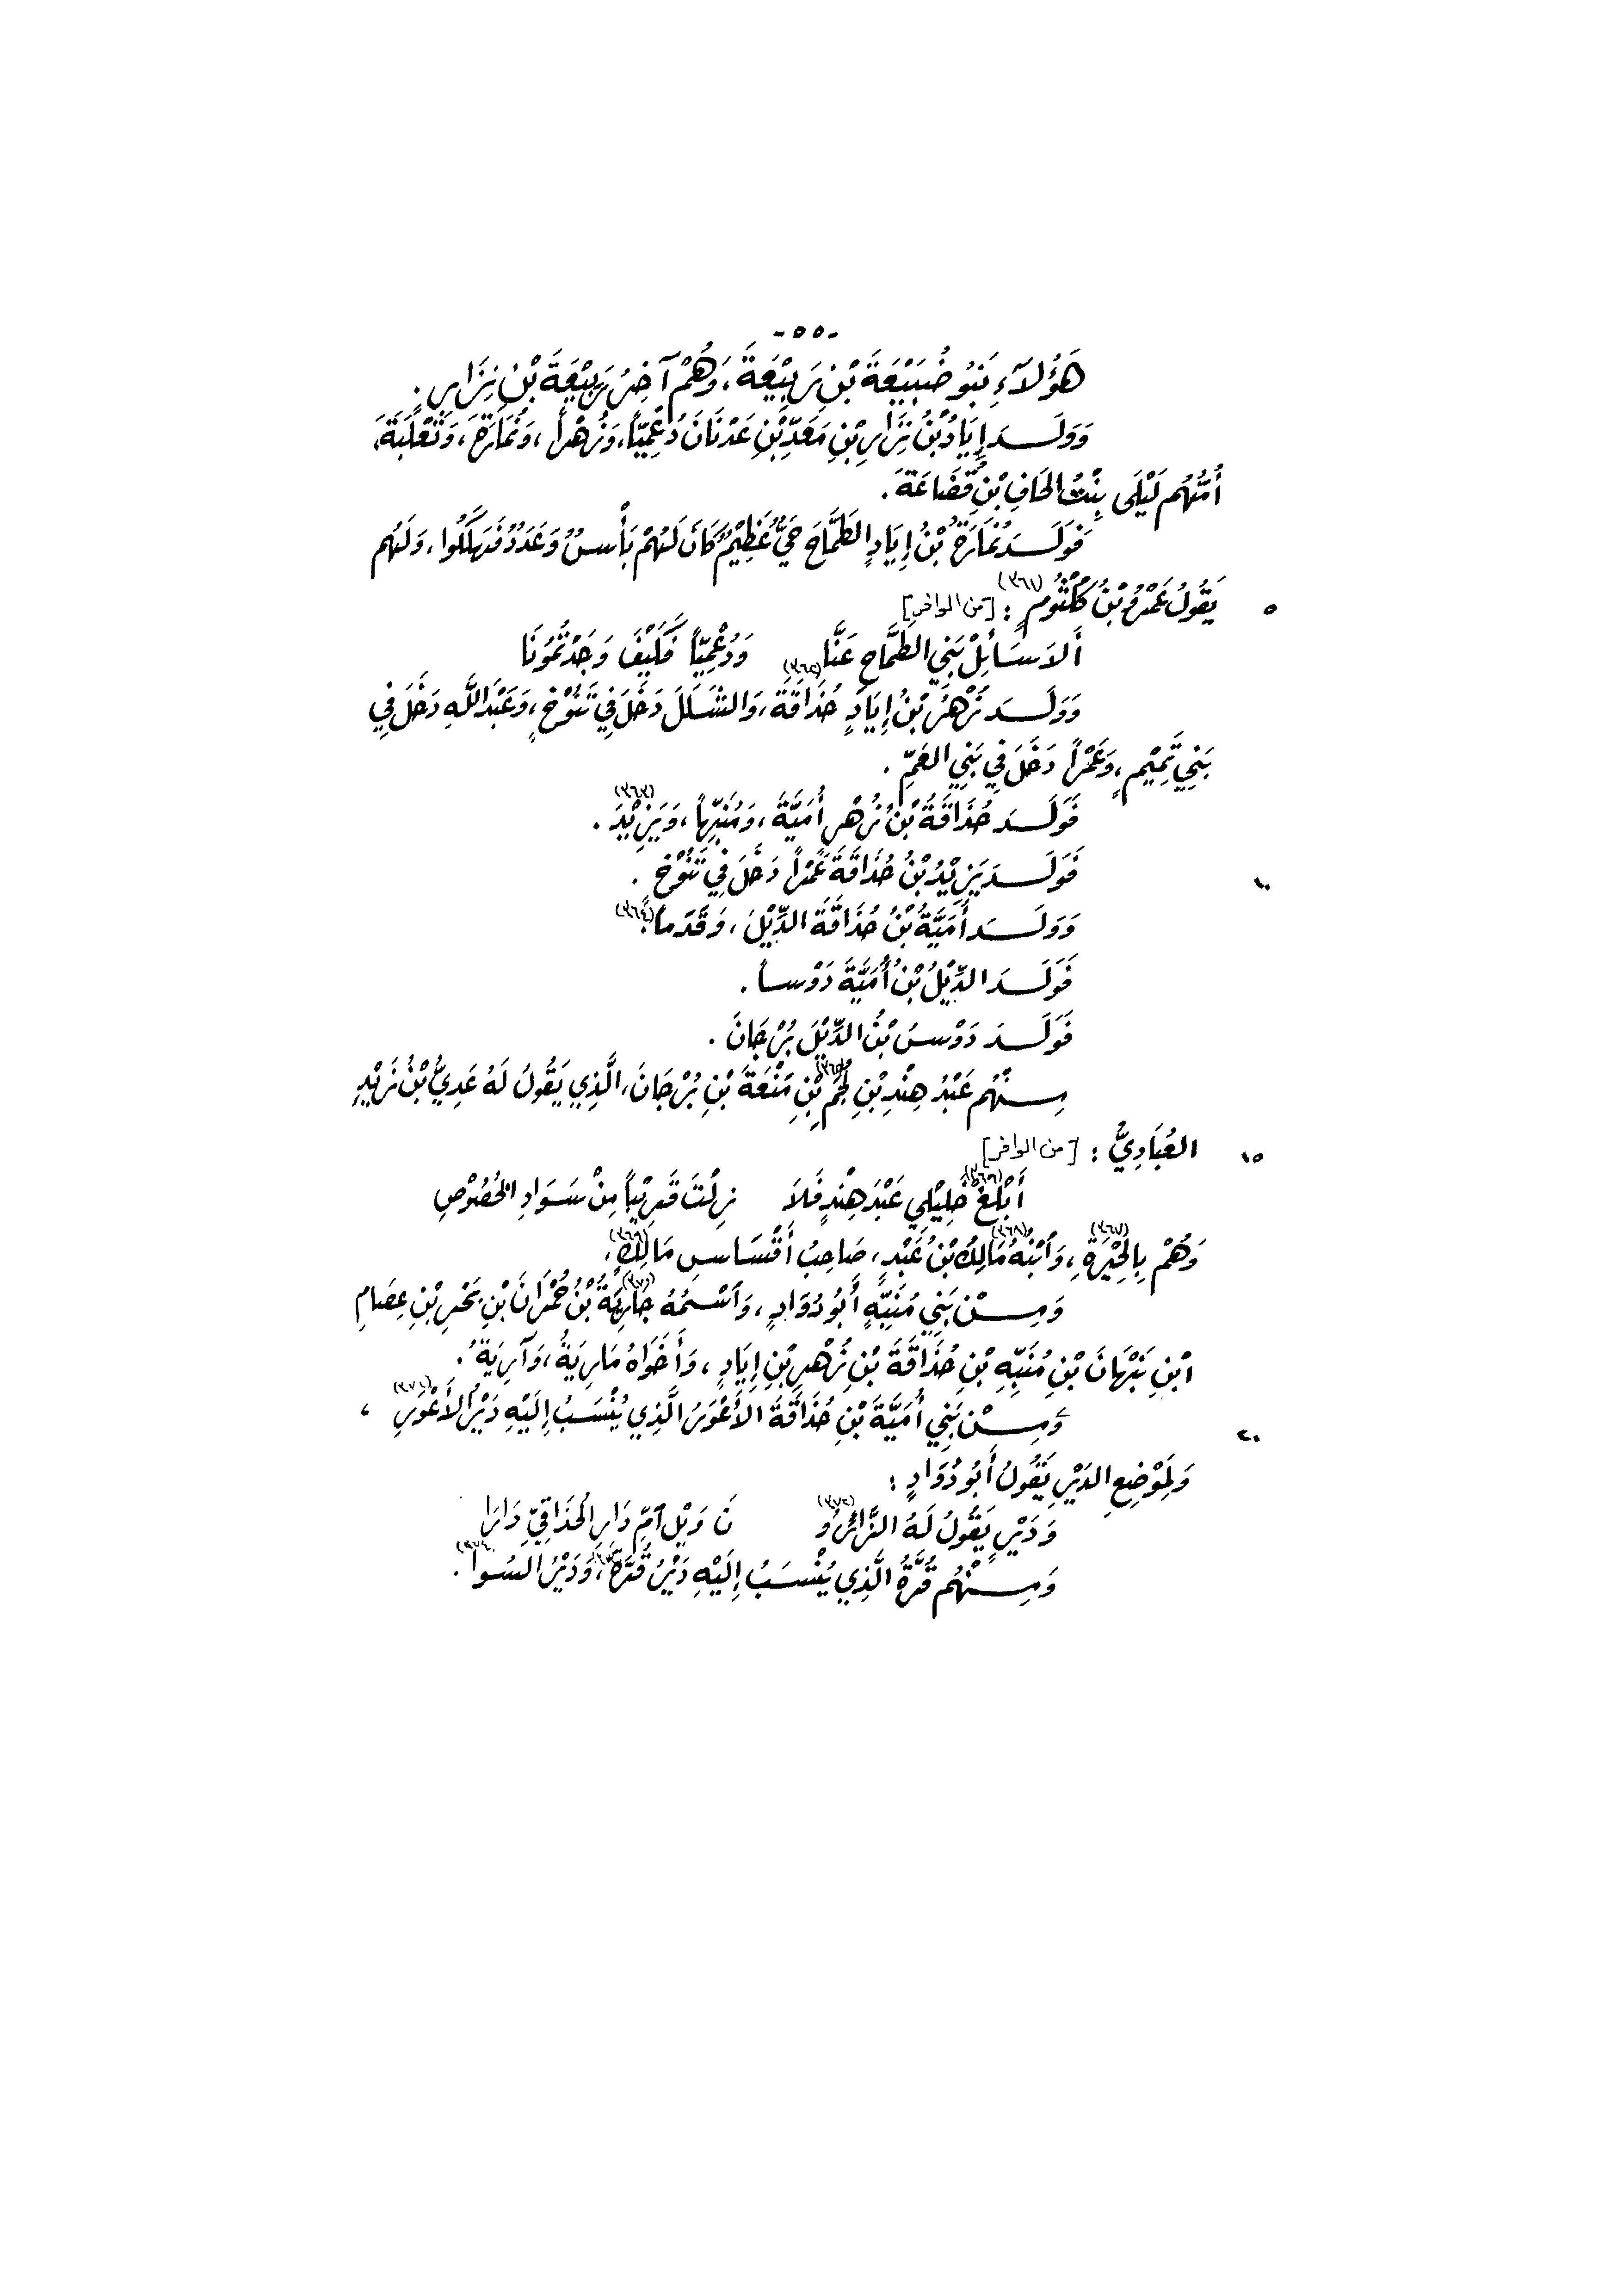 -٥٥-
هَؤُلآءِ بَنُو ضُبَيْعَةَ بْنِ رَبِيْعَةَ، وَهُمْ آخِرُ رَبِيْعَةَ بْنِ نِزَارٍ.
وَوَلَدَ إِيَادُ بْنُ نِزَارِ بْنِ مَعَدِّ بْنِ عَدْنَانَ دُعْمِيّاً، وَزُهْراً، وَنُمَارَةَ، وَثَعْلَبَةَ،
أُمُّهُم لَيْلَى بِنْتُ الحَافِ بْنِ قُضَاعَةَ.
فَوَلَدَ نُمَارَةُ بْنُ إِيَادٍ الطَّمَّاحَ حَيٌّ عَظِيْمٌ كَانَ لَهُمْ بَأْسٌ وَعَدَدٌ فَهَلَكُوا، وَلَهُم
٥ يَقُولُ عَمْرُو بْنُ كُلْثُومٍ (٣٦١): [من الوافر]
أَلاَ سَائِلْ بَنِي الطَّمَّاحِ عَنَّا وَدُعْمِيّاً فَكَيْفَ وَجَدْتُمُونَا (٣٦٢)
وَوَلَدَ زُهْرُ بْنُ إِيَادٍ حُذَاقَةَ، وَالشَّلَلَ دَخَلَ فِي تَنُوْخٍ، وَعَبْدَاللَّهِ دَخَلَ فِي
بَنِي تَمِيْمٍ، وَعَمْراً دَخَلَ فِي بَنِي العَمِّ.
فَوَلَدَ حُذَاقَةُ بْنُ زُهْرٍ أُمَيَّةَ، وَمُنَبِّهاً، وَيَزِيْدَ (٣٦٣).
١٠ فَوَلَدَ يَزِيْدُ بْنُ حُذَاقَةَ عَمْراً دَخَلَ فِي تَنُوْخٍ.
وَوَلَدَ أُمَيَّةُ بْنُ حُذَاقَةَ الدِّيْلَ، وَقَدَماً (٣٦٤).
فَوَلَدَ الدِّيْلُ بْنُ أُمَيَّةَ دَوْساً.
فَوَلَدَ دَوْسُ بْنُ الدِّيْلِ بُرْجَانَ.
مِنْهُم عَبْدُ هِنْدِ بْنِ لُجَمِ (٣٦٥) بْنِ مَنْعَةَ بْنِ بُرْجَانَ، الَّذِي يَقُولُ لَهُ عَدِيُّ بْنُ زَيْدٍ
١٥ العُبَادِيُّ: [من الوافر]
أَبْلِغْ خَلِيْلِي عَبْدَ هِنْدٍ فَلاَ زِلْتَ قَرِيْباً مِنْ سَوَادِ الخُصُوْصِ
وَهُمْ بِالحِيْرَةِ (٣٦٧)، وَابْنُهُ مَالِكُ (٣٦٨) بْنُ عَبْدِ، صَاحِبُ أَقْسَاسِ مَالِكٍ (٣٦٩).
وَمِنْ بَنِي مُنَبِّهٍ أَبُو دُوَادٍ، وَاسْمُهُ جَارِيَةُ (٣٧٠) بْنُ حُمْرَانَ بْنِ بَحْرِ بْنِ عِصَامِ
ابْنِ نَبْهَانَ بْنِ مُنَبِّهِ بْنِ حُذَاقَةَ بْنِ زُهْرِ بْنِ إِيَادٍ، وَأَخَوَاهُ مَارِيَةُ، وَآرِيَةُ.
٢٠ وَمِنْ بَنِي أُمَيَّةَ بْنِ حُذَاقَةَ الأَعْوَرُ الَّذِي يُنْسَبُ إِلَيْهِ دَيْرُ الأَعْوَرِ (٣٧١)،
وَلِمَوْضِعِ الدَيْرِ يَقُولُ أَبُو دُوَادٍ:
وَدَيْرٍ يَقُولُ لَهُ الزَّائِرُو (٣٧٢) نَ وَيْلُ امِّ دَارِ الحُذَاقِيِّ دَارَا
وَمِنْهُم قُرَّةُ الَّذِي يُنْسَبُ إِلَيْهِ دَيْرُ قُرَّةَ (٣٧٣)، وَدَيْرُ السُوا (٣٧٤).